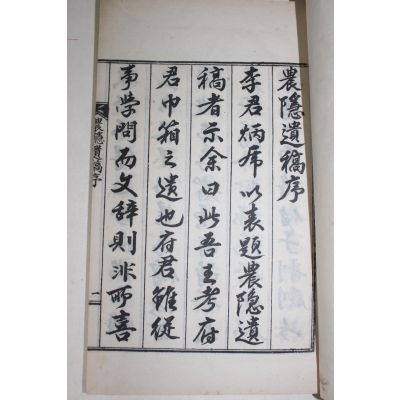 農隐遺稿序
李君炳席以表題農隐遺
稿者示余曰此吾王考府
君巾箱之遺也府君雖従
事学問而文辞則非所喜
農隱遺稿序
一